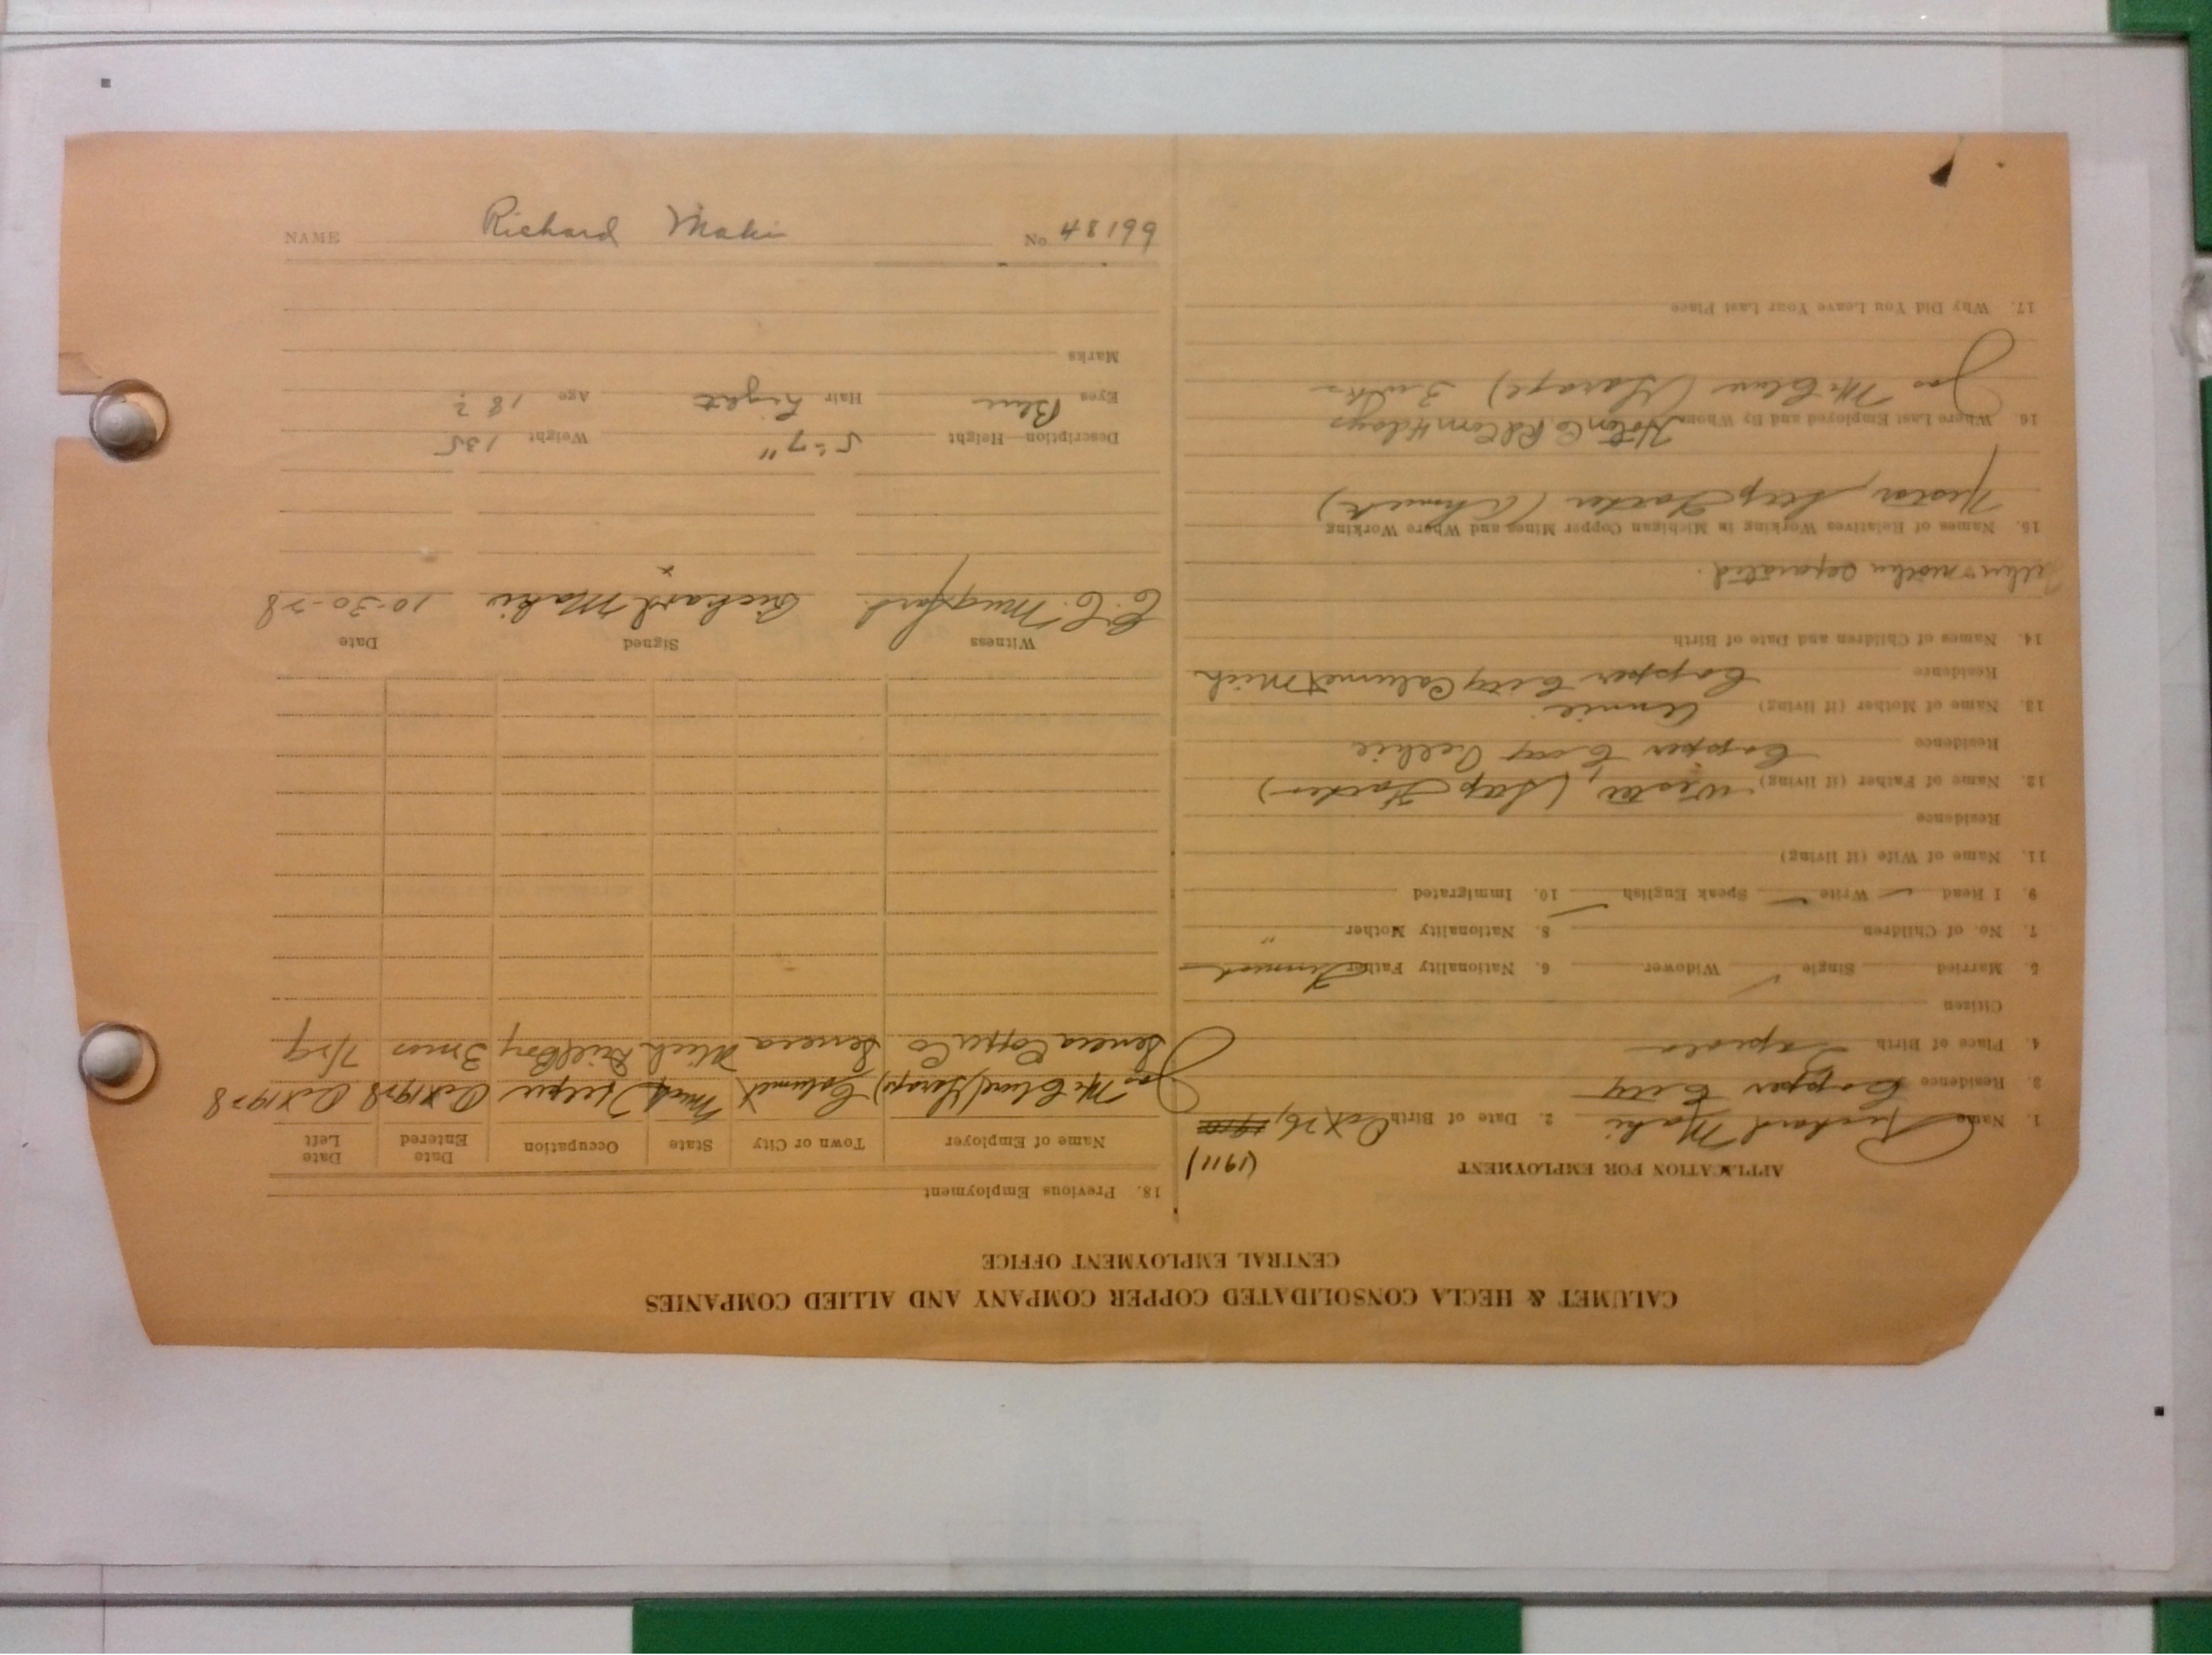 CALUMET & HECLA CONSOLIDATED COPPER COMPANY AND ALLIED COMPANIES
CENTRAL EMPLOYMENT OFFICE
APPLICATION FOR EMPLOYMENT (1911)
1. Name Richard Maki 2. Date of Birth Oct 26, 1910
3. Residence Copper City
4. Place of Birth Tapiola
Citizen
5. Married Single ✓ Widower 6. Nationality Father Finnish
7. No. of Children 8. Nationality Mother "
9. I Read ✓ Write ✓ Speak English ✓ 10. Immigrated
11. Name of Wife (if living)
Residence
12. Name of Father (if living)
Residence Copper City
13. Name of Mother (if living) Annie
Residence Copper City Calumet Mich
14. Names of Children and Date of Birth
mother separated.
15. Names of Relatives Working in Michigan Copper Mines and Where Working
(Ahmeek)
16. Where Last Employed and By Whom Hoton Co Rd Com 4 days
Jas McClure (Garage) 3 wks
17. Why Did You Leave Your Last Place
18. Previous Employment
Name of Employer Town or City State Occupation Date Entered Date Left
Jas McClure (Garage) Calumet Mich Helper Oct 1928 Oct 1928
Seneca Copper Co Seneca Mich Drill Boy 3 mos 7/29
Witness Signed Date
C. C. Mugford Richard Maki 10-30-28
x
Description—Height 5'-7" Weight 135
Eyes Blue Hair Light Age 18 ?
Marks
NAME Richard Maki No. 48199